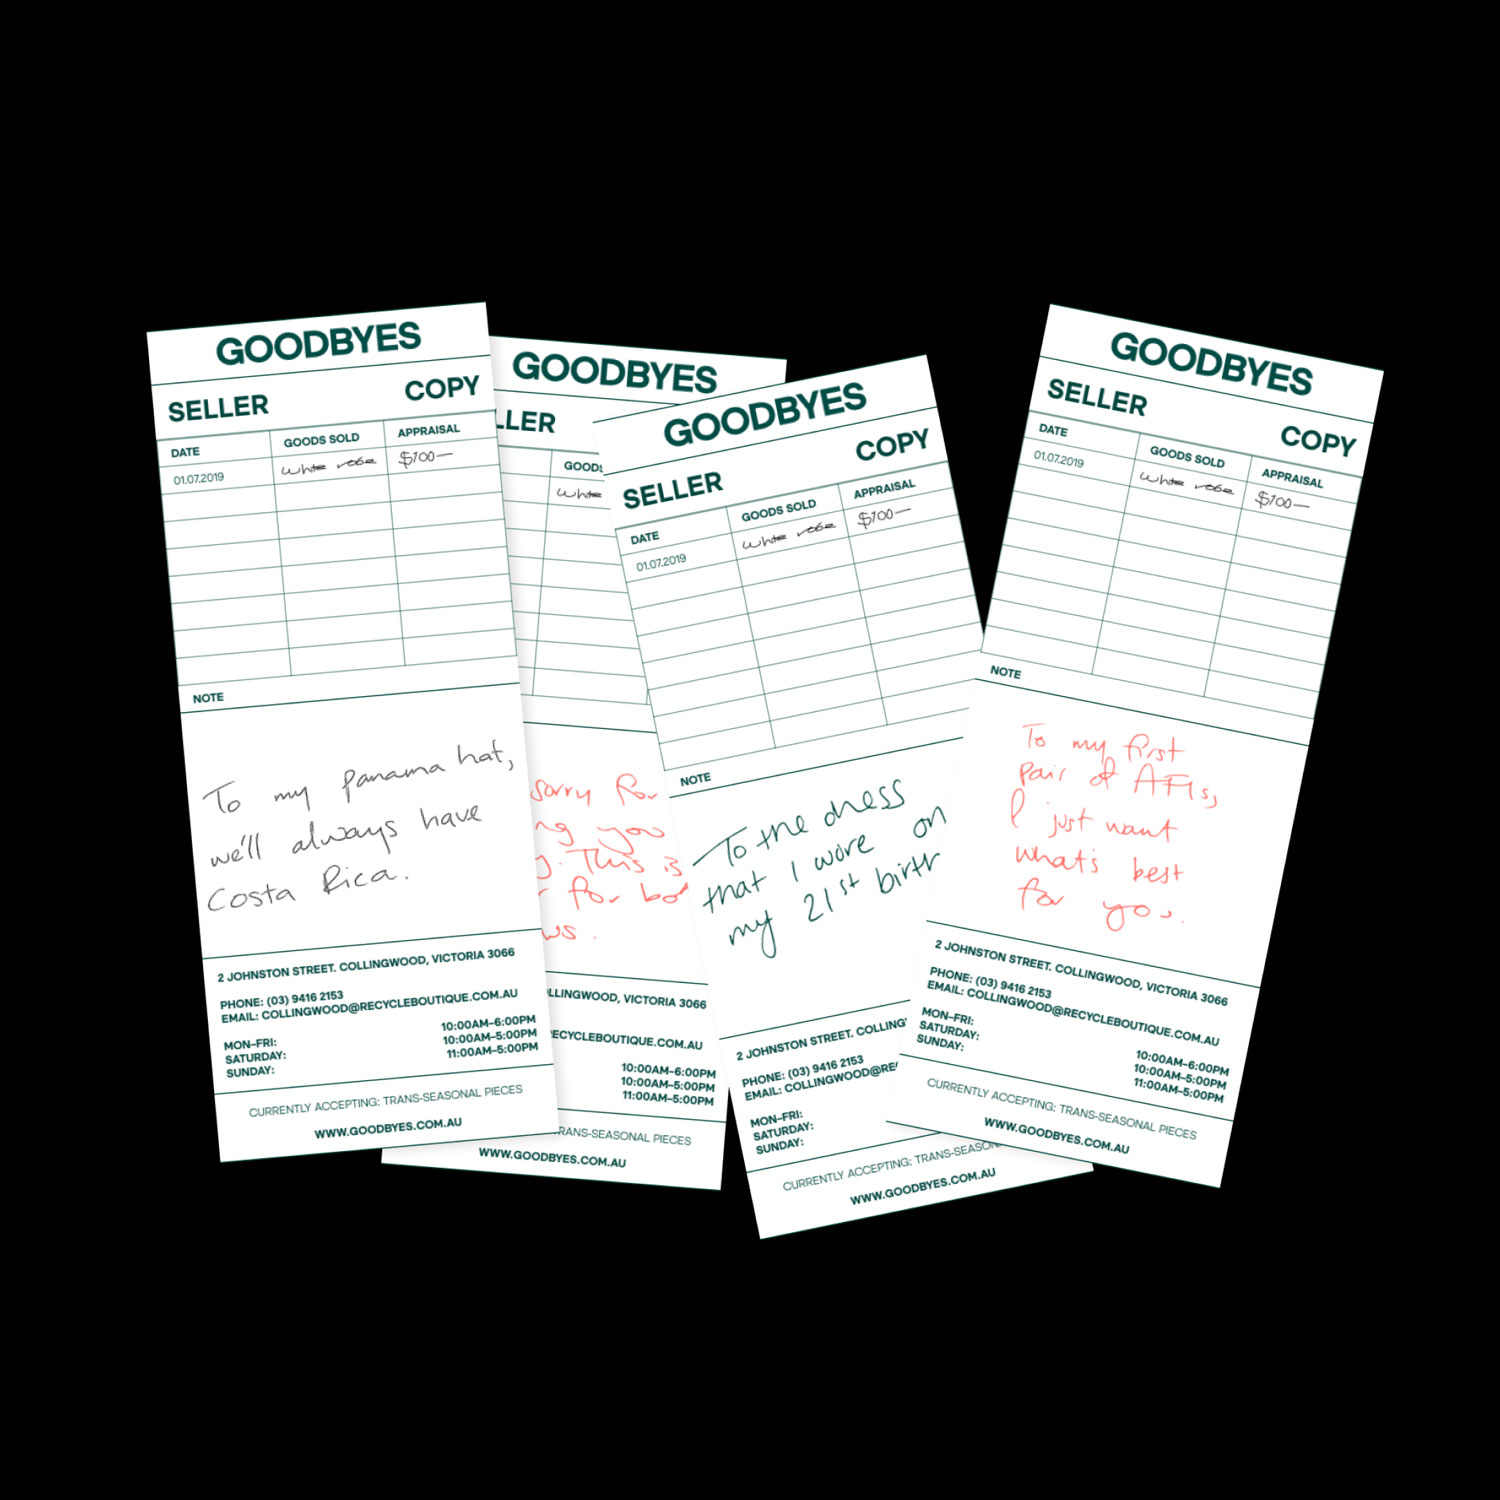 GOODBYES
SELLER COPY
DATE GOODS SOLD APPRAISAL
01.07.2019 white robe $100—
NOTE
To my panama hat,
we'll always have
Costa Rica.
2 JOHNSTON STREET. COLLINGWOOD, VICTORIA 3066
PHONE: (03) 9416 2153
EMAIL: COLLINGWOOD@RECYCLEBOUTIQUE.COM.AU
MON–FRI: 10:00AM–6:00PM
SATURDAY: 10:00AM–5:00PM
SUNDAY: 11:00AM–5:00PM
CURRENTLY ACCEPTING: TRANS-SEASONAL PIECES
WWW.GOODBYES.COM.AU
GOODBYES
LLER
GOODS
white
sorry for
ng you
y. This is
for bo
ws.
LLINGWOOD, VICTORIA 3066
ECYCLEBOUTIQUE.COM.AU
10:00AM–6:00PM
10:00AM–5:00PM
11:00AM–5:00PM
RANS-SEASONAL PIECES
WWW.GOODBYES.COM.AU
GOODBYES
SELLER COPY
DATE GOODS SOLD APPRAISAL
01.07.2019 white robe $100—
NOTE
To the dress
that I wore on
my 21st birth
2 JOHNSTON STREET. COLLING
PHONE: (03) 9416 2153
EMAIL: COLLINGWOOD@RE
MON–FRI:
SATURDAY:
SUNDAY:
CURRENTLY ACCEPTING: TRANS-SEASON
WWW.GOODBYES.COM.AU
GOODBYES
SELLER COPY
DATE GOODS SOLD APPRAISAL
01.07.2019 white robe $100—
NOTE
To my first
pair of AF1s,
I just want
what's best
for you.
2 JOHNSTON STREET. COLLINGWOOD, VICTORIA 3066
PHONE: (03) 9416 2153
EMAIL: COLLINGWOOD@RECYCLEBOUTIQUE.COM.AU
MON–FRI: 10:00AM–6:00PM
SATURDAY: 10:00AM–5:00PM
SUNDAY: 11:00AM–5:00PM
CURRENTLY ACCEPTING: TRANS-SEASONAL PIECES
WWW.GOODBYES.COM.AU